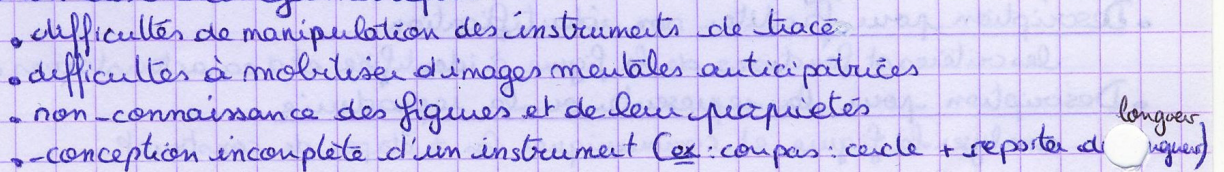 • difficultés de manipulation des instruments de tracé.
• difficultés à mobiliser d'images mentales anticipatrices
• non-connaissance des figures et de leur propriétés
longueur
• -conception incomplète d'un instrument (ex : compas : cercle + reporter d nguer)